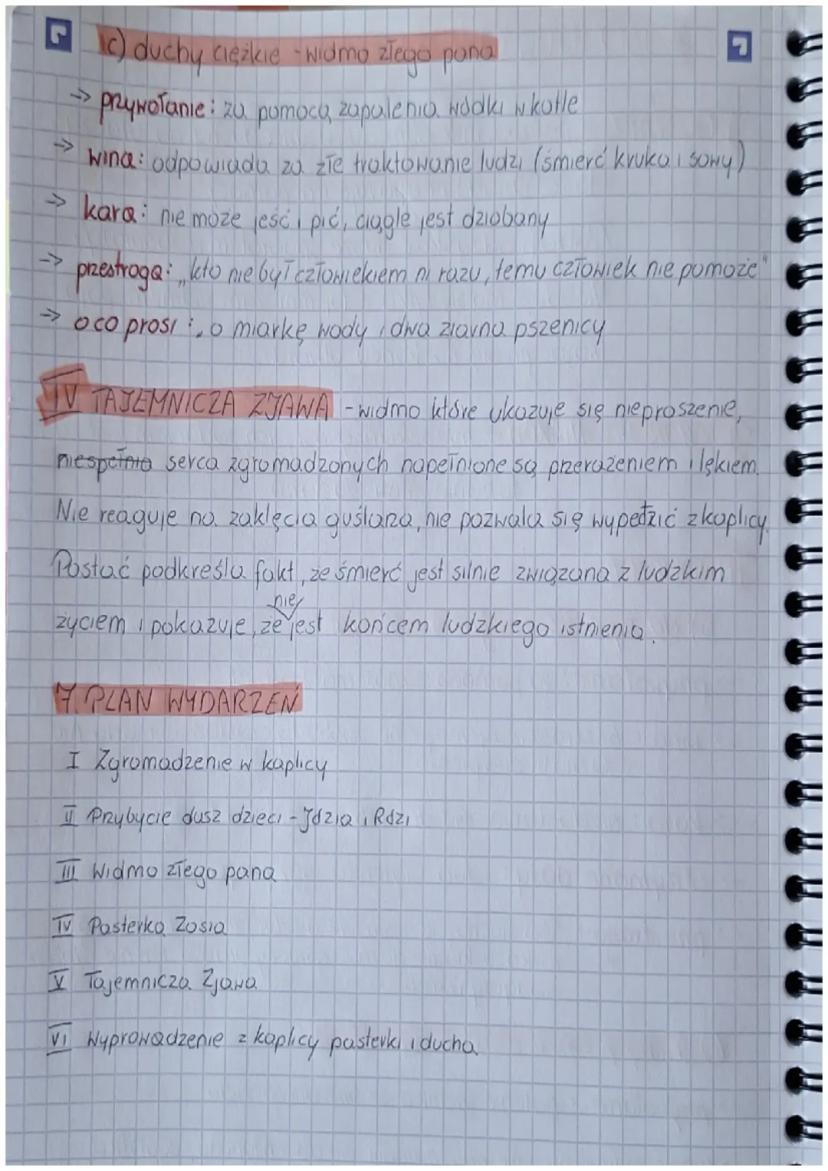 c) duchy ciężkie - widmo złego pana
→ przywołanie: za pomocą zapalenia wódki w kotle
→ wina: odpowiada za złe traktowanie ludzi (śmierć kruka i sowy)
→ kara: nie może jeść i pić, ciągle jest dziobany
→ przestroga: „kto nie był człowiekiem ni razu, temu człowiek nie pomoże"
→ o co prosi: o miarkę wody i dwa ziarna pszenicy
IV TAJEMNICZA ZJAWA - widmo które ukazuje się nieproszenie,
niespełnia serca zgromadzonych napełnione są przerażeniem i lękiem.
Nie reaguje na zaklęcia guślarza, nie pozwala się wypędzić z kaplicy.
Postać podkreśla fakt, że śmierć jest silnie związana z ludzkim
nie
życiem i pokazuje, że jest końcem ludzkiego istnienia.
7. PLAN WYDARZEŃ
I Zgromadzenie w kaplicy
II Przybycie dusz dzieci - Józia i Rózi
III Widmo złego pana
IV Pasterka Zosia
V Tajemnicza Zjawa
VI Wyprowadzenie z kaplicy pasterki i ducha